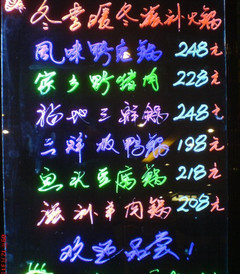 冬季暖冬滋补火锅
风味野兔锅 248元
家乡野猪肉 228元
福地三鲜锅 248元
三鲜板鸭锅 198元
鱼水豆腐锅 218元
滋补羊肉锅 208元
欢迎品尝!